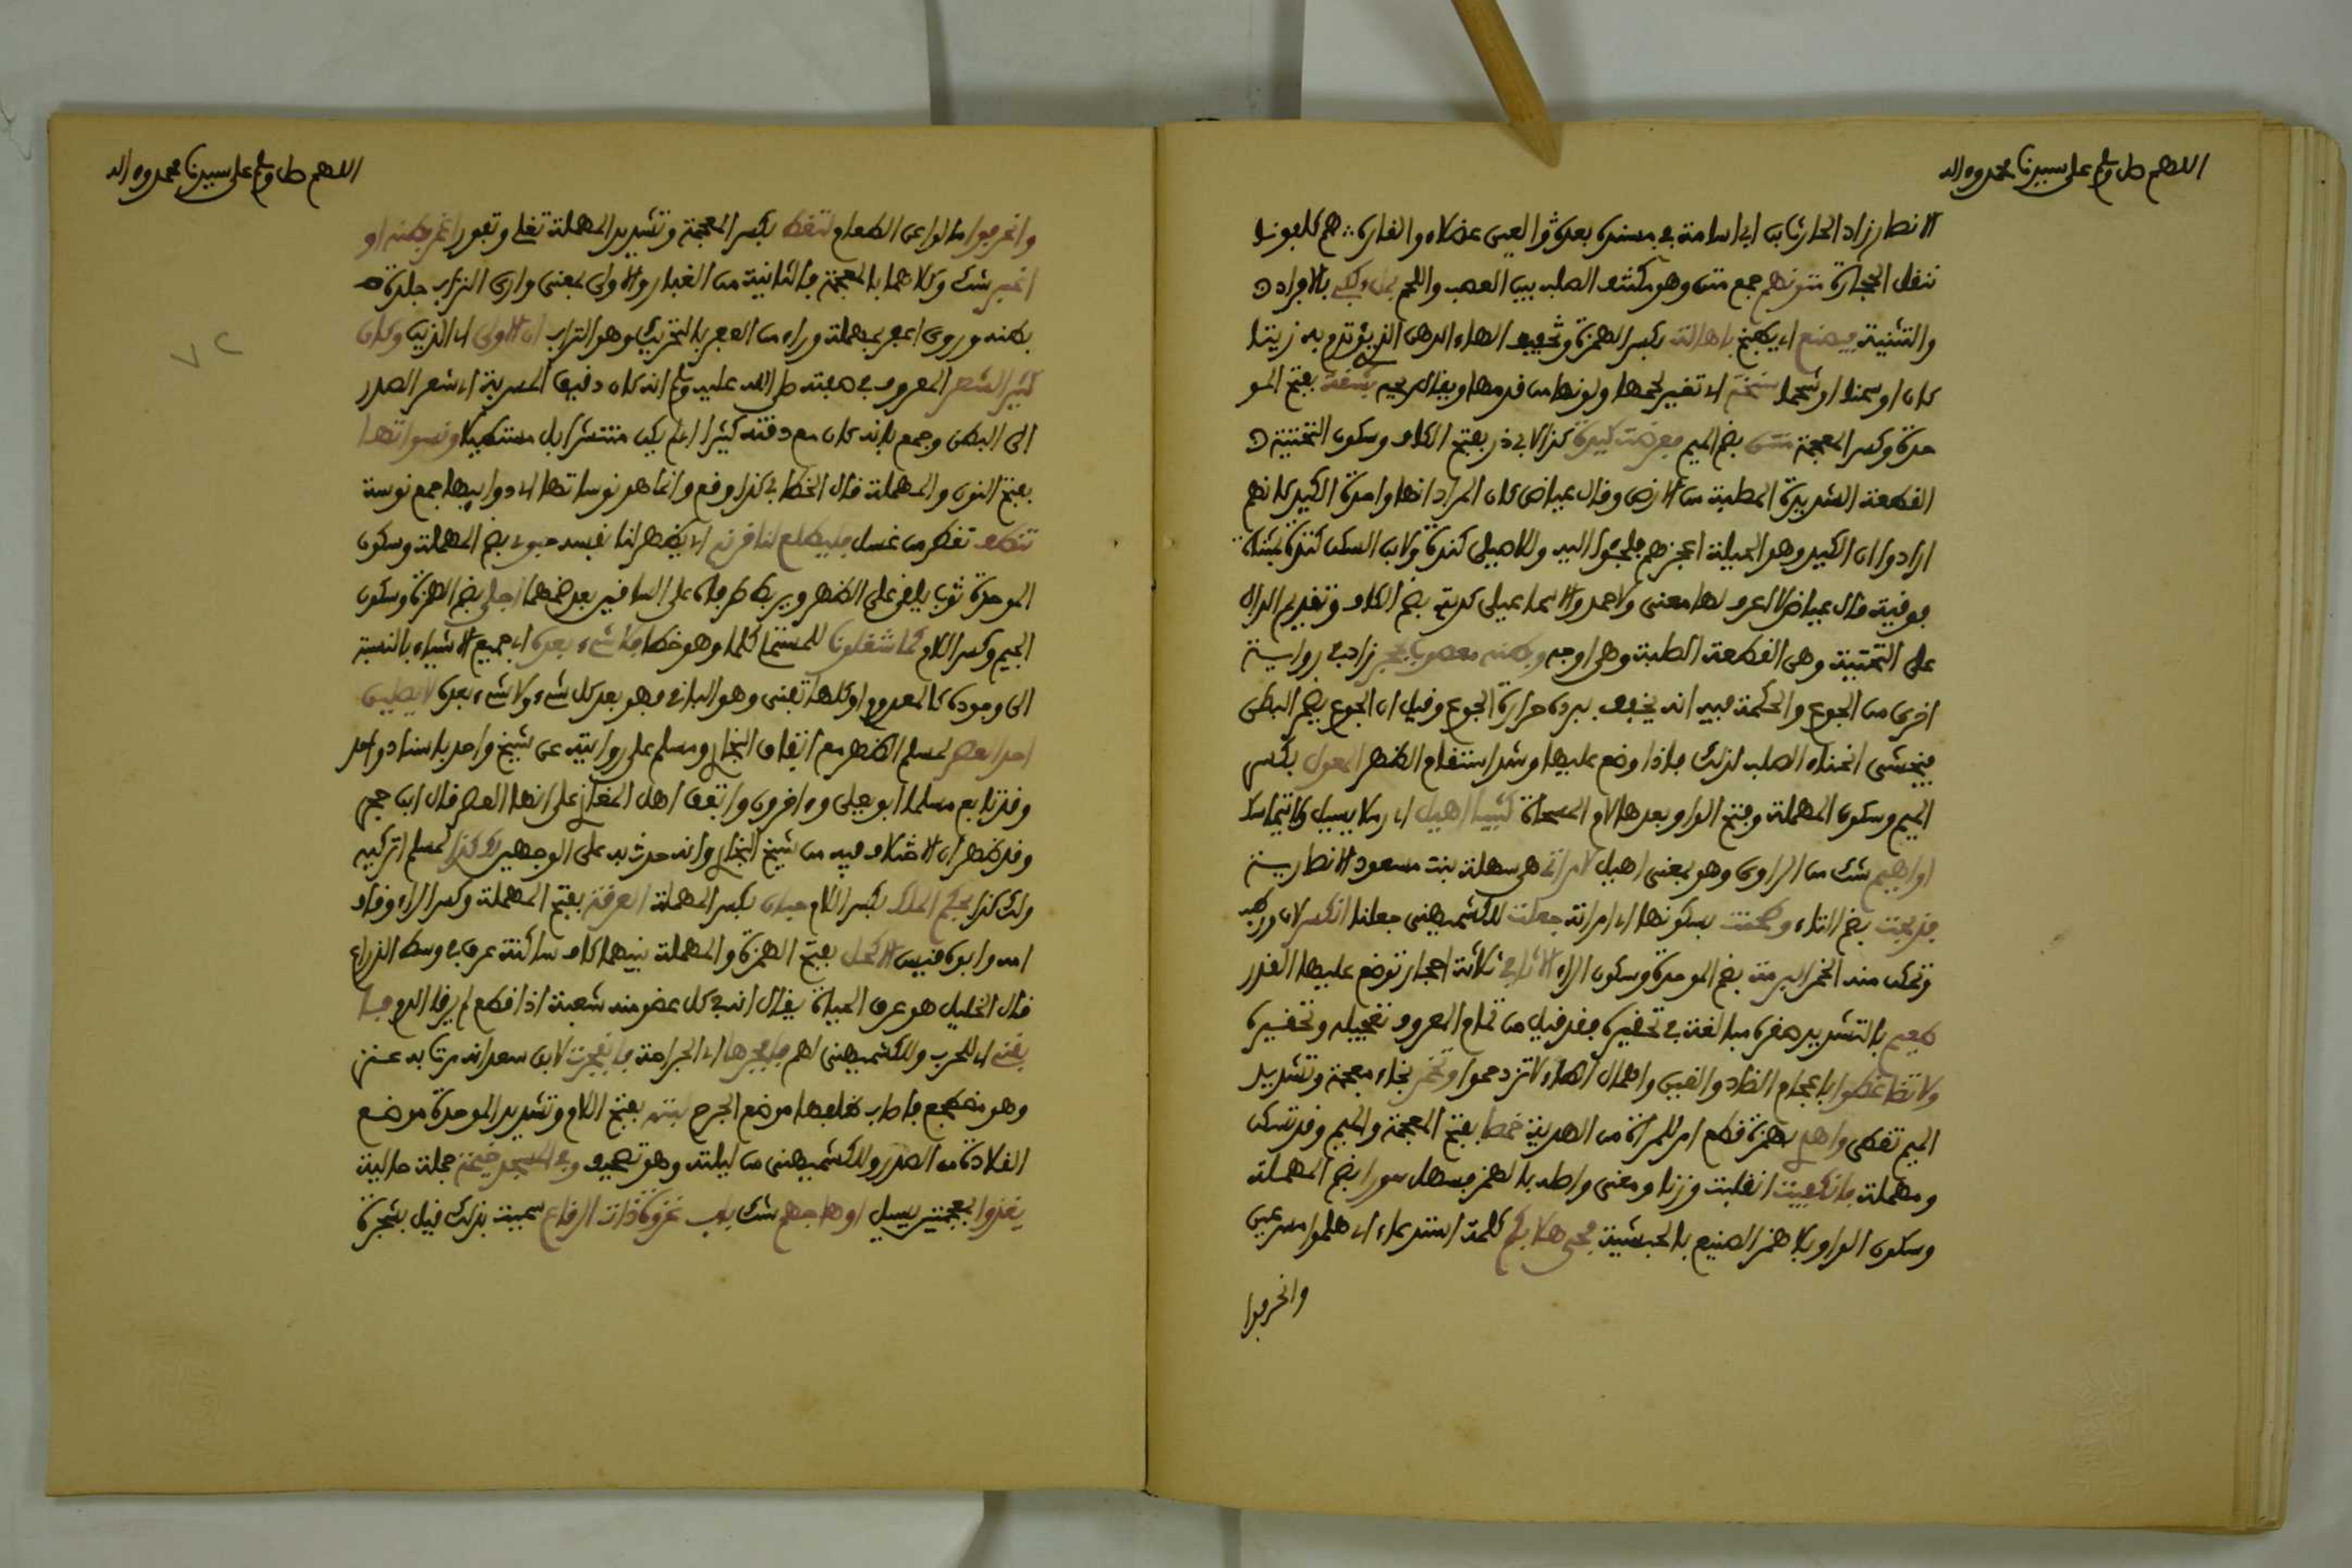 اللهم صل وسلم على سيدنا محمد وءاله
الانصار زاد الحارث ابن ابي اسامة في مسنده بعده والعن عضلا والقارة هم كلفونا
ننقل الحجارة متونهم جمع متن وهو مكتنف الصلب بين العصب واللحم بالافراد
والتثنية فيصنع اي يطبخ باهالة بكسر الهمزة وتخفيف الهاء الدهن الذي يؤتدم به زيتا
كان او سمنا او شحما سنخة اي تغير طعمها ولونها من قدمها بشعة بفتح المو
حدة وكسر المعجمة منتن بضم الميم فعرضت كيدة كذا لابي ذر بفتح الكاف وسكون التحتية
القطعة الشديدة الصلبة من الارض وقال عياض كان المراد انها واحدة الكيد كانهم
ارادوا ان الكيد وهو الحيلة اعجزهم فلجئوا اليه وللاصيلي كندة ولابن السكن كتدة
فوقية قال عياض لا اعرف لها معنى ولاحمد والاسماعيلي كدية بضم الكاف وتقديم الدال
على التحتية وهي القطعة الصلبة وهي اوجه وبطنه معصوب بحجر زاد في رواية
اخرى من الجوع والحكمة فيه انه يخفف ببرده حرارة الجوع وقيل ان الجوع يضمر البطن
فيخشى انحناء الصلب لذلك فاذا وضع عليها وشد استقام الظهر المعول بكسر
الميم وسكون المهملة وفتح الواو بعدها لام المسحاة كثيبا اهيل اي رملا يسيل ولا يتماسك
او اهيم شك من الراوي وهو بمعنى اهيل لامراته هي سهلة بنت مسعود الانصارية
فذبحت بضم التاء وطحنت بسكونها اي امراته جعلت للكشميهني جعلنا انكسر لان ورطب
وتمكن منه الخمر البرمة بضم الموحدة وسكون الراء الاثافي ثلاثة احجار توضع عليها القدر
طعيم بالتشديد صغره مبالغة في تحقيره فقد قيل من تمام المعروف تعجيله وتحقيره
ولا تضاغطوا باعجام الضاد والغين واهمال الطاء لا تزدحموا وتخمر بخاء معجمة وتشديد
الميم تغطى واهدي بهمزة قطع امر للمراة من الهدية خمصا بفتح المعجمة والميم وقد تسكن
ومهملة فانكفيت انقلبت وزنا ومعنى واصله بالهمز فسهل سورا بضم المهملة
وسكون الواو بلا همز الصنيع بالحبشية فحي هلا بكم كلمة استدعاء اي هلموا مسرعين
وانحرفوا
اللهم صل وسلم على سيدنا محمد وءاله
وانحرفوا مالوا عن الطعام لتغط بكسر المعجمة وتشديد المهملة تغلي وتفور اغمر بطنه او
اغبر شك وكلاهما بالمعجمة فالثانية من الغبار والاولى بمعنى وارى التراب جلدة
بطنه وروي اعفر بمهملة وراء من العفر بالتحريك وهو التراب ان الاولى اي الذين وكان
كثير الشعر المعروف في صفته صلى الله عليه وسلم انه كان دقيق المسربة اي شعر الصدر
الى البطن وجمع بانه كان مع دقته كثيرا اي لم يكن منتشرا بل مستطيلا ونسواتها
بفتح النون والمهملة قال الخطابي كذا وقع وانما هو نوساتها اي ذوائبها جمع نوسة
تنطف تقطر من غسل فليطلع لنا قرنه اي يظهر لنا نفسه حبوتي بضم المهملة وسكون
الموحدة ثوب يلقى على الظهر ويربط طرفاه على الساقين بعد ضمهما اجلي بضم الهمزة وسكون
الجيم وكسر اللام كما شغلونا للمستملي كلما وهو خطا فلا شيء بعده اي جميع الاشياء بالنسبة
الى وجوده كالمعدوم او كلها تفنى وهو الباقي فهو بعد كل شيء ولا شيء بعده لا يصلين
احد العصر لمسلم الظهر مع اتفاق البخاري ومسلم على روايته عن شيخ واحد باسناد واحد
وقد تابع مسلما ابو يعلى وءاخرون واتفق اهل المغازي على انها العصر قال ابن حجر
وقد ظهر ان الاختلاف فيه من شيخ البخاري وانه حدث به على الوجهين ولك كذا لمسلم اتركيه
ولك كذا بحكم الملك بكسر اللام حبان بكسر المهملة العرقة بفتح المهملة وكسر الراء وقاف
امه وابوه قيس الاكحل بفتح الهمزة والمهملة بينهما كاف ساكنة عرق في وسط الذراع
قال الخليل هو عرق الحياة يقال ان في كل عضو منه شعبة اذا قطع لم يرقا الدم فما
بقي اي للحرب وللكشميهني لهم فافجرها اي الجراحة فانفجرت لابن سعد انه مرت به عنز
وهو مضطجع فاصاب ظلفها موضع الجرح لبته بفتح اللام وتشديد الموحدة موضع
القلادة من الصدر وللكشميهني من ليلته وهو تصحيف وفي المسجد خيمة جملة حالية
يغذوا بمعجمتين يسيل او هاجهم شك باب غزوة ذات الرقاع سميت بذلك قيل بشجرة